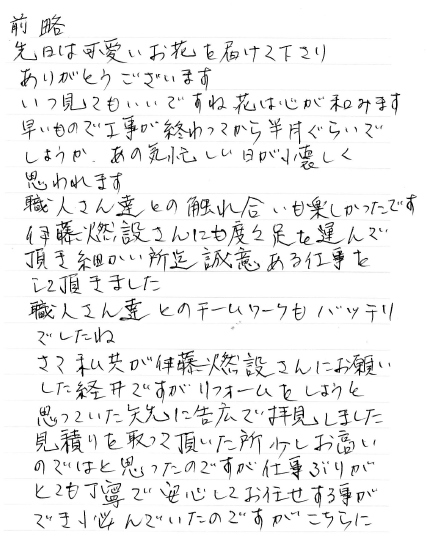 前略
先日は可愛いお花を届けて下さり
ありがとうございます
いつ見てもいいですね花は心が和みます
早いもので工事が終わってから半月ぐらいで
しょうか、あの気忙しい日が懐しく
思われます
職人さん達との触れ合いも楽しかったです
伊藤燃設さんにも度々足を運んで
頂き細かい所迄誠意ある仕事を
して頂きました
職人さん達とのチームワークもバッチリ
でしたね
さて私共が伊藤燃設さんにお願い
した経緯ですがリフォームをしようと
思っていた矢先に広告で拝見しました
見積りを取って頂いた所少しお高い
のではと思ったのですが仕事ぶりが
とても丁寧で安心してお任せする事が
でき悩んでいたのですがこちらに